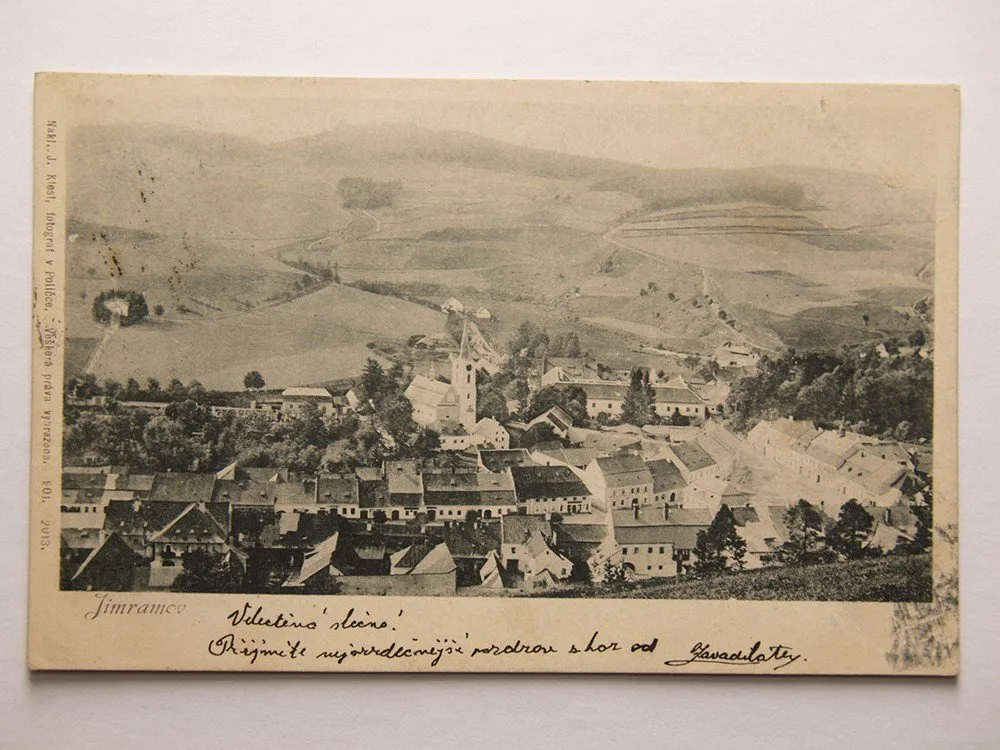 Nakl. J. Klest, fotograf v Poličce. - Veškerá práva vyhrazena. 
Jimramov
Velectěná slečno!
Přijměte nejsrdečnější pozdrav s hor od